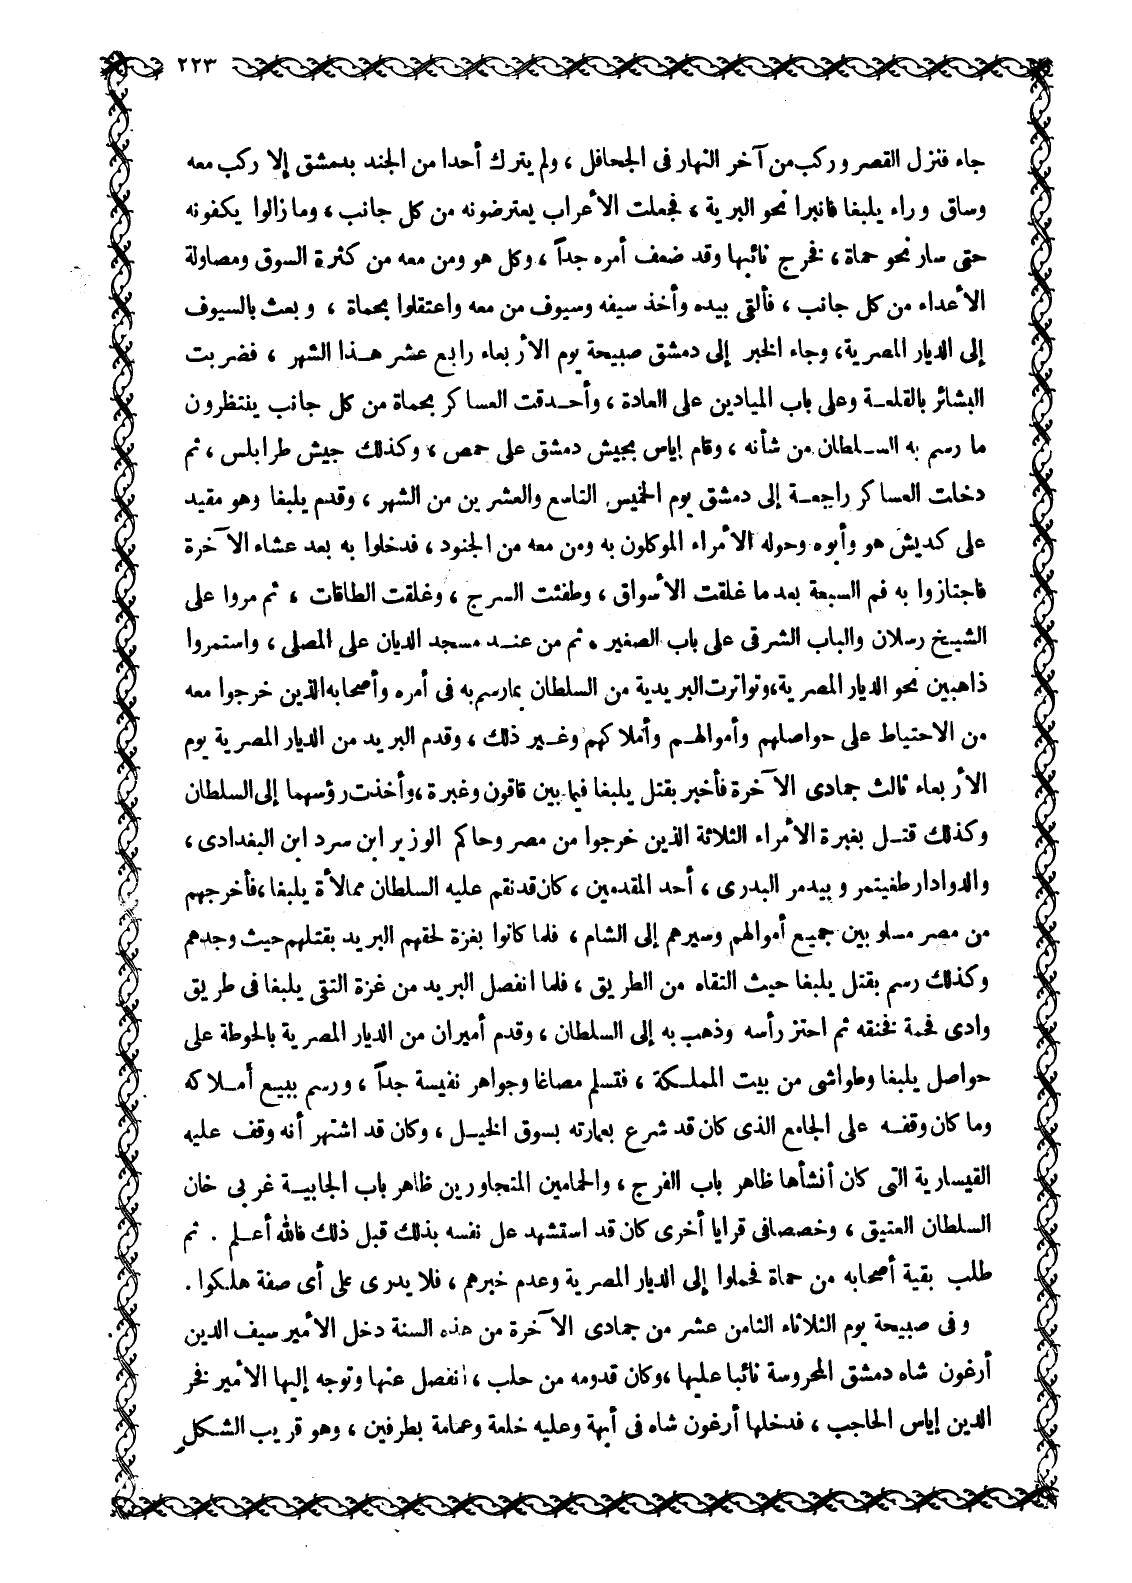 ٢٢٣
جاء فنزل القصر وركب من آخر النهار فى الجحافل ، ولم يترك أحدا من الجند بدمشق إلا ركب معه
وساق وراء يلبغا فانبرا نحو البرية ، فجعلت الأعراب يعترضونه من كل جانب ، وما زالوا يكفونه
حتى سار نحو حماة ، فخرج نائبها وقد ضعف أمره جداً ، وكل هو ومن معه من كثرة السوق ومصاولة
الأعداء من كل جانب ، فألقى بيده وأخذ سيفه وسيوف من معه واعتقلوا بحماة ، وبعث بالسيوف
إلى الديار المصرية ، وجاء الخبر إلى دمشق صبيحة يوم الأربعاء رابع عشر هذا الشهر ، فضربت
البشائر بالقلعة وعلى باب الميادين على العادة ، وأحدقت العساكر بحماة من كل جانب ينتظرون
ما رسم به السلطان من شأنه ، وقام إياس بجيش دمشق على حمص ، وكذلك جيش طرابلس ، ثم
دخلت العساكر راجعة إلى دمشق يوم الخميس التاسع والعشرين من الشهر ، وقدم يلبغا وهو مقيد
على كديش هو وأبوه وحوله الأمراء الموكلون به ومن معه من الجنود ، فدخلوا به بعد عشاء الآخرة
فاجتازوا به فم السبعة بعد ما غلقت الأسواق ، وطفئت السرج ، وغلقت الطاقات ، ثم مروا على
الشيخ رسلان والباب الشرقى على باب الصغير . ثم من عند مسجد الديان على المصلى ، واستمروا
ذاهبين نحو الديار المصرية ، وتواترت البريدية من السلطان بما رسم به فى أمره وأصحابه الذين خرجوا معه
من الاحتياط على حواصلهم وأموالهم وأملاكهم وغير ذلك ، وقدم البريد من الديار المصرية يوم
الأربعاء ثالث جمادى الآخرة فأخبر بقتل يلبغا فيما بين قاقون وغبرة ، وأخذت رؤسهما إلى السلطان
وكذلك قتل بغبرة الأمراء الثلاثة الذين خرجوا من مصر وحاكم الوزير ابن سرد ابن البغدادى ،
والدوادار طغيتمر وبيدمر البدرى ، أحد المقدمين ، كان قد نقم عليه السلطان ممالأة يلبغا ، فأخرجهم
من مصر مسلوبين جميع أموالهم وسيرهم إلى الشام ، فلما كانوا بغزة لحقهم البريد بقتلهم حيث وجدهم
وكذلك رسم بقتل يلبغا حيث التقاه من الطريق ، فلما انفصل البريد من غزة التقى يلبغا فى طريق
وادى فحمة فخنقه ثم احتز رأسه وذهب به إلى السلطان ، وقدم أميران من الديار المصرية بالحوطة على
حواصل يلبغا وطواشى من بيت المملكة ، فتسلم مصاغا وجواهر نفيسة جداً ، ورسم ببيع أملاكه
وما كان وقفه على الجامع الذى كان قد شرع بعمارته بسوق الخيل ، وكان قد اشتهر أنه وقف عليه
القيسارية التى كان أنشأها ظاهر باب الفرج ، والحمامين المتجاورين ظاهر باب الجابية غربى خان
السلطان العتيق ، وخصصا فى قرايا أخرى كان قد استشهد على نفسه بذلك قبل ذلك فالله أعلم . ثم
طلب بقية أصحابه من حماة فحملوا إلى الديار المصرية وعدم خبرهم ، فلا يدرى على أى صفة هلكوا .
وفى صبيحة يوم الثلاثاء الثامن عشر من جمادى الآخرة من هذه السنة دخل الأمير سيف الدين
أرغون شاه دمشق المحروسة نائبا عليها ، وكان قدومه من حلب ، انفصل عنها وتوجه إليها الأمير فخر
الدين إياس الحاجب ، فدخلها أرغون شاه فى أبهة وعليه خلعة وعمامة بطرفين ، وهو قريب الشكل